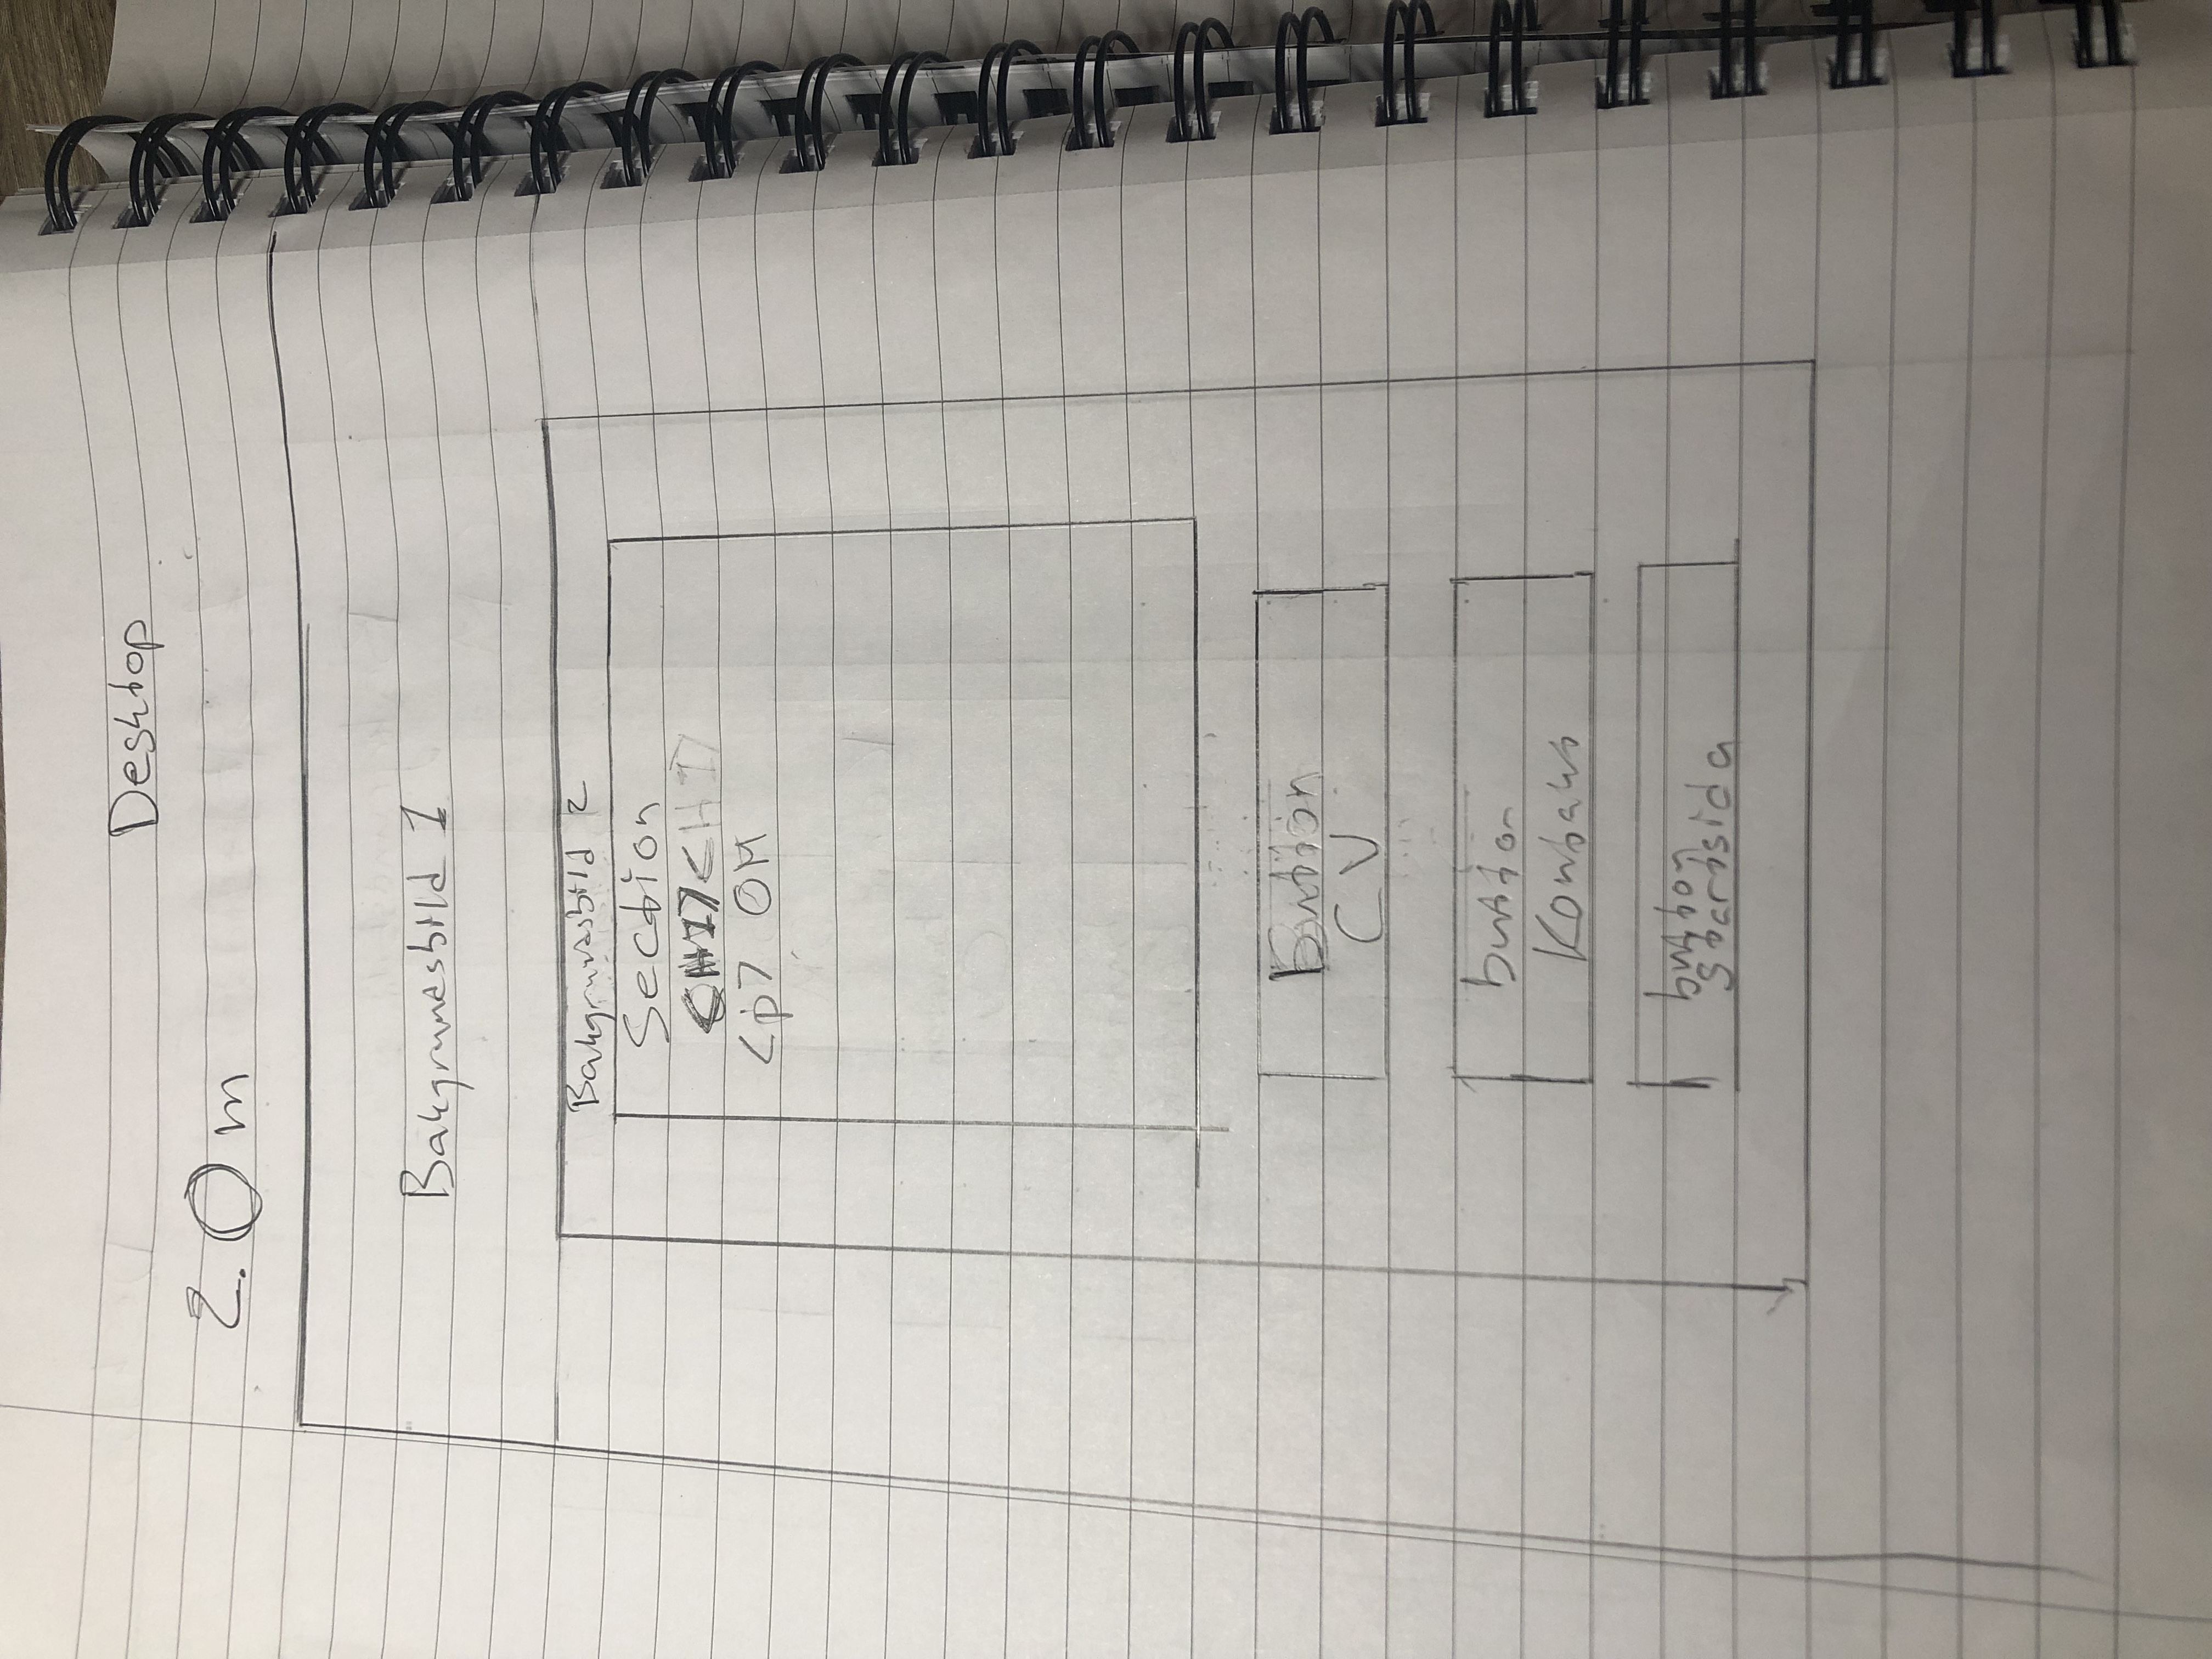 Desktop
2. Om
Bakgrundsbild 1
Bakgrundsbild 2
Section
<H1> <H1>
<p> OM
Button
CV
button
Kontakt
button
Startsida